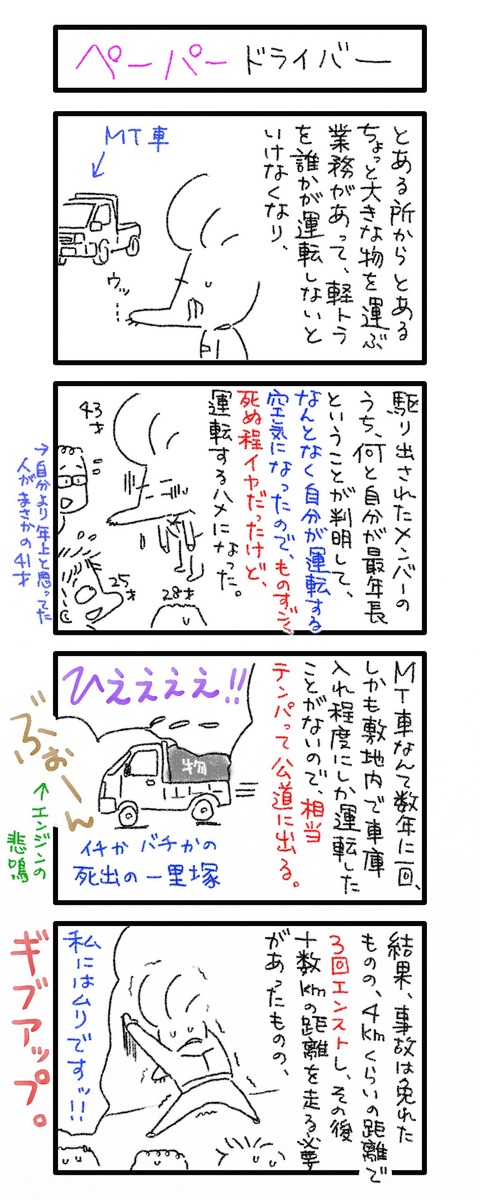 ペーパードライバー
とある所からとある
ちょっと大きな物を運ぶ
業務があって、軽トラ
を誰かが運転しないと
いけなくなり、
MT車
ウッ
…
駆り出されたメンバーの
うち、何と自分が最年長
ということが判明して、
なんとなく自分が運転する
空気になったので、ものすごく
死ぬ程イヤだったけど、
運転するハメになった。
43才
25才
28才
→自分より年上と思ってた
人がまさかの41才
MT車なんて数年に一回、
しかも敷地内で車庫
入れ程度にしか運転した
ことがないので、相当
テンパって公道に出る。
ひええええ!!
物
ぶぉーん
↑エンジンの
悲鳴
イチかバチかの
死出の一里塚
結果、事故は免れた
ものの、4kmくらいの距離で
3回エンストし、その後
十数kmの距離を走る必要
があったものの、
私にはムリですッ!!
ギブアップ。